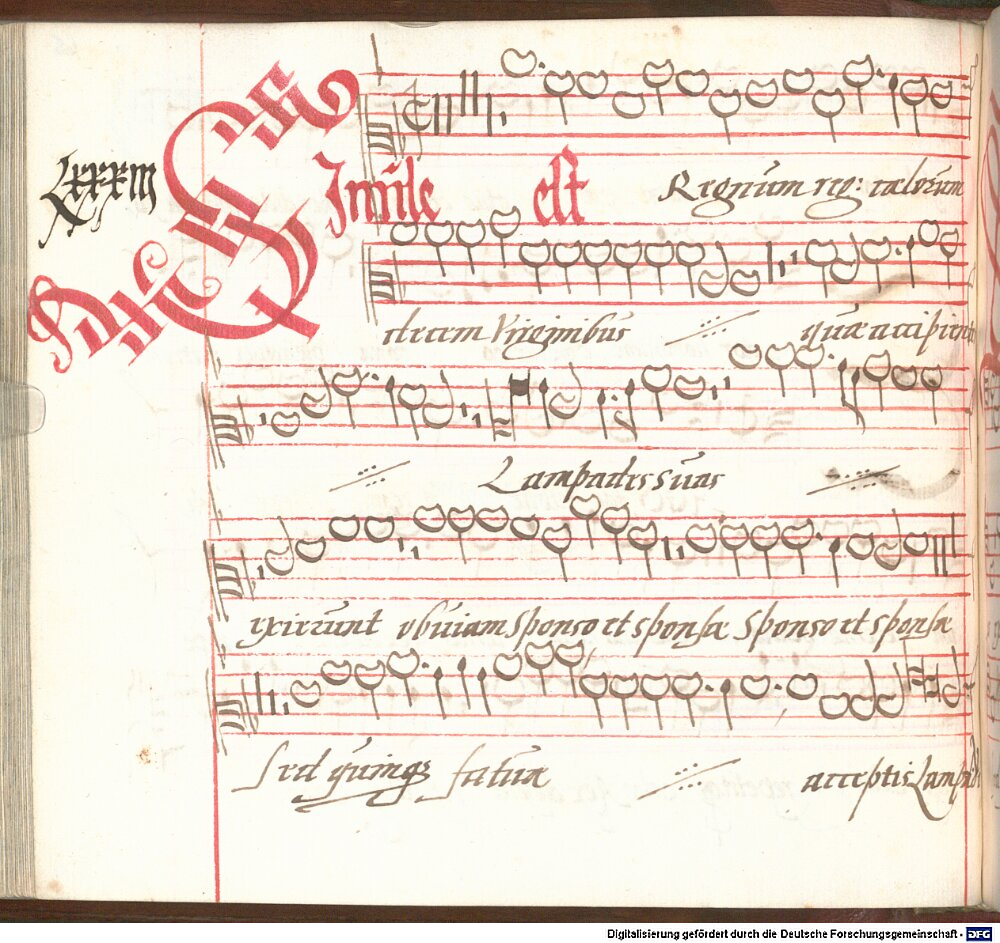 LXXXIII
Simile est Regnum reg: cælorum
decem Virginibus ·//· quæ accipient
·//· Lampades suas ·//·
exierunt obuiam sponso et sponsæ Sponso et sponsæ
sed quinqȝ fatuæ ·//· acceptis Lampad
Digitalisierung gefördert durch die Deutsche Forschungsgemeinschaft - DFG